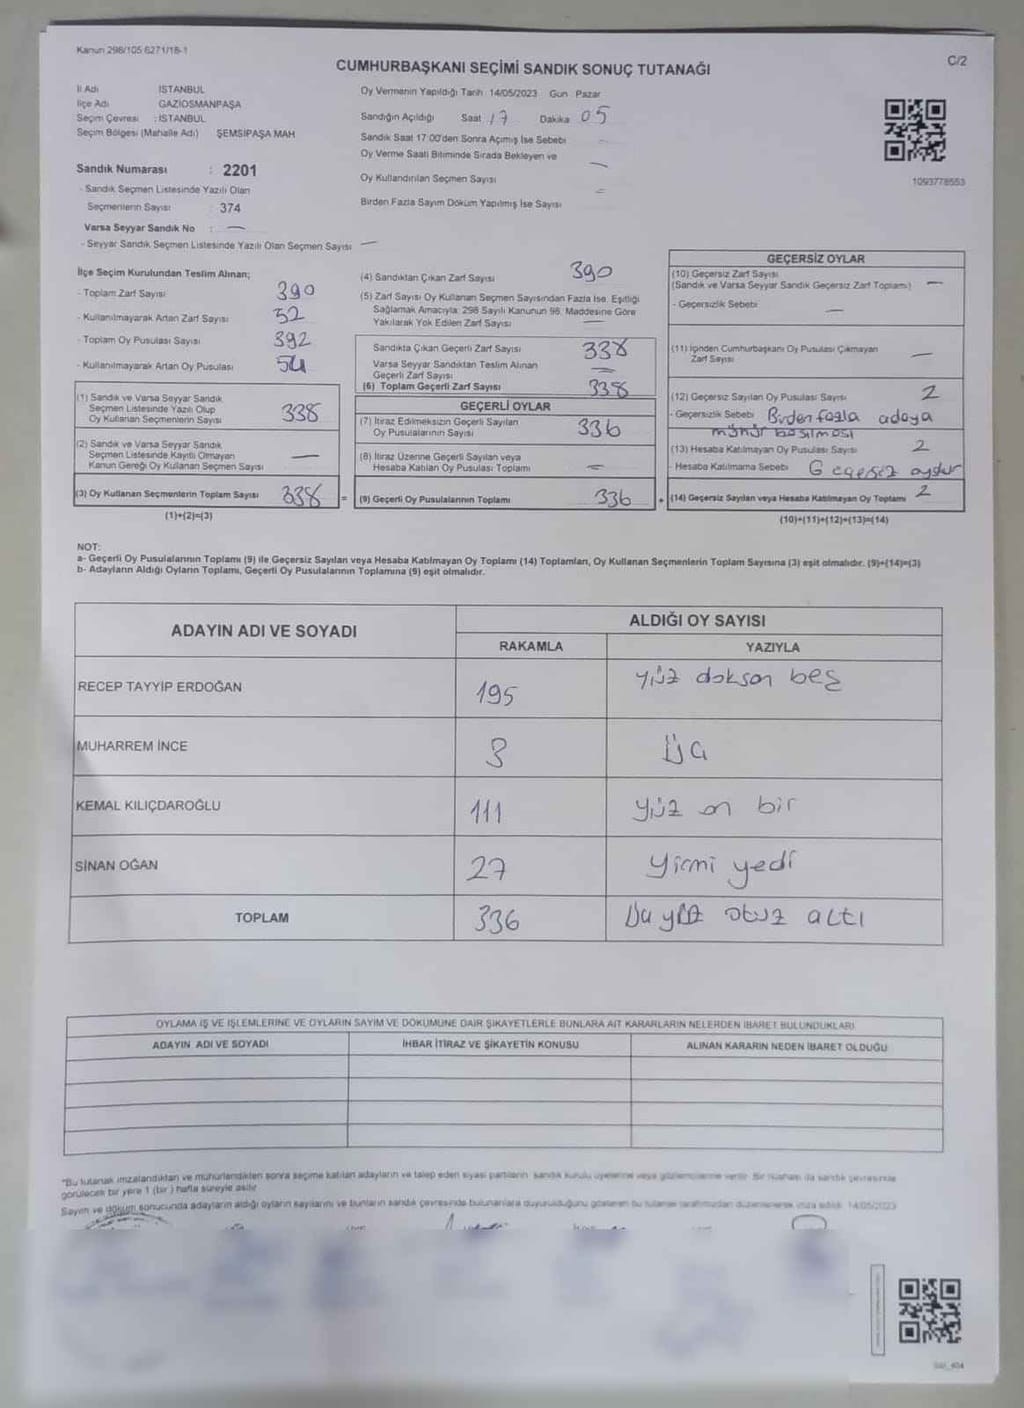 Kanun 298/105 6271/18-1
C/2
CUMHURBAŞKANI SEÇİMİ SANDIK SONUÇ TUTANAĞI
İl Adı : İSTANBUL
İlçe Adı GAZİOSMANPAŞA
Seçim Çevresi : İSTANBUL
Seçim Bölgesi (Mahalle Adı) ŞEMSİPAŞA MAH
Sandık Numarası : 2201
- Sandık Seçmen Listesinde Yazılı Olan
Seçmenlerin Sayısı : 374
Varsa Seyyar Sandık No : —
- Seyyar Sandık Seçmen Listesinde Yazılı Olan Seçmen Sayısı —
Oy Vermenin Yapıldığı Tarih 14/05/2023 Gün Pazar
Sandığın Açıldığı Saat 17 Dakika 05
Sandık Saat 17:00'den Sonra Açılmış İse Sebebi
Oy Verme Saati Bitiminde Sırada Bekleyen ve
Oy Kullandırılan Seçmen Sayısı —
Birden Fazla Sayım Döküm Yapılmış İse Sayısı
1093778553
İlçe Seçim Kurulundan Teslim Alınan;
- Toplam Zarf Sayısı 390
- Kullanılmayarak Artan Zarf Sayısı 52
- Toplam Oy Pusulası Sayısı 392
- Kullanılmayarak Artan Oy Pusulası 54
(1) Sandık ve Varsa Seyyar Sandık
Seçmen Listesinde Yazılı Olup
Oy Kullanan Seçmenlerin Sayısı 338
(2) Sandık ve Varsa Seyyar Sandık
Seçmen Listesinde Kayıtlı Olmayan
Kanun Gereği Oy Kullanan Seçmen Sayısı —
(3) Oy Kullanan Seçmenlerin Toplam Sayısı 338 =
(1)+(2)=(3)
(4) Sandıktan Çıkan Zarf Sayısı 390
(5) Zarf Sayısı Oy Kullanan Seçmen Sayısından Fazla İse, Eşitliği
Sağlamak Amacıyla; 298 Sayılı Kanunun 98. Maddesine Göre
Yakılarak Yok Edilen Zarf Sayısı —
Sandıkta Çıkan Geçerli Zarf Sayısı 338
Varsa Seyyar Sandıktan Teslim Alınan
Geçerli Zarf Sayısı
(6) Toplam Geçerli Zarf Sayısı 338
GEÇERLİ OYLAR
(7) İtiraz Edilmeksizin Geçerli Sayılan
Oy Pusulalarının Sayısı 336
(8) İtiraz Üzerine Geçerli Sayılan veya
Hesaba Katılan Oy Pusulası Toplamı
(9) Geçerli Oy Pusulalarının Toplamı 336 +
GEÇERSİZ OYLAR
(10) Geçersiz Zarf Sayısı
(Sandık ve Varsa Seyyar Sandık Geçersiz Zarf Toplamı) —
- Geçersizlik Sebebi —
(11) İçinden Cumhurbaşkanı Oy Pusulası Çıkmayan
Zarf Sayısı —
(12) Geçersiz Sayılan Oy Pusulası Sayısı 2
- Geçersizlik Sebebi Birden fazla adaya
mühür basılması
(13) Hesaba Katılmayan Oy Pusulası Sayısı 2
- Hesaba Katılmama Sebebi Geçersiz oydur
(14) Geçersiz Sayılan veya Hesaba Katılmayan Oy Toplamı 2
(10)+(11)+(12)+(13)=(14)
NOT:
a- Geçerli Oy Pusulalarının Toplamı (9) ile Geçersiz Sayılan veya Hesaba Katılmayan Oy Toplamı (14) Toplamları, Oy Kullanan Seçmenlerin Toplam Sayısına (3) eşit olmalıdır. (9)+(14)=(3)
b- Adayların Aldığı Oyların Toplamı, Geçerli Oy Pusulalarının Toplamına (9) eşit olmalıdır.
ADAYIN ADI VE SOYADI
ALDIĞI OY SAYISI
RAKAMLA YAZIYLA
RECEP TAYYİP ERDOĞAN 195 yüz doksan beş
MUHARREM İNCE 3 üç
KEMAL KILIÇDAROĞLU 111 yüz on bir
SİNAN OĞAN 27 yirmi yedi
TOPLAM 336 Üç yüz otuz altı
OYLAMA İŞ VE İŞLEMLERİNE VE OYLARIN SAYIM VE DÖKÜMÜNE DAİR ŞİKAYETLERLE BUNLARA AİT KARARLARIN NELERDEN İBARET BULUNDUKLARI
ADAYIN ADI VE SOYADI İHBAR İTİRAZ VE ŞİKAYETİN KONUSU ALINAN KARARIN NEDEN İBARET OLDUĞU
"Bu tutanak imzalandıktan ve mühürlendikten sonra seçime katılan adayların ve talep eden siyasi partilerin sandık kurulu üyelerine veya gözlemcilerine verilir. Bir nüshası da sandık çevresinde
görülecek bir yere 1 (bir) hafta süreyle asılır
Sayım ve döküm sonucunda adayların aldığı oyların sayılarını ve bunların sandık çevresinde bulunanlara duyurulduğunu gösteren bu tutanak tarafımızdan düzenlenerek imza edildi. 14/05/2023